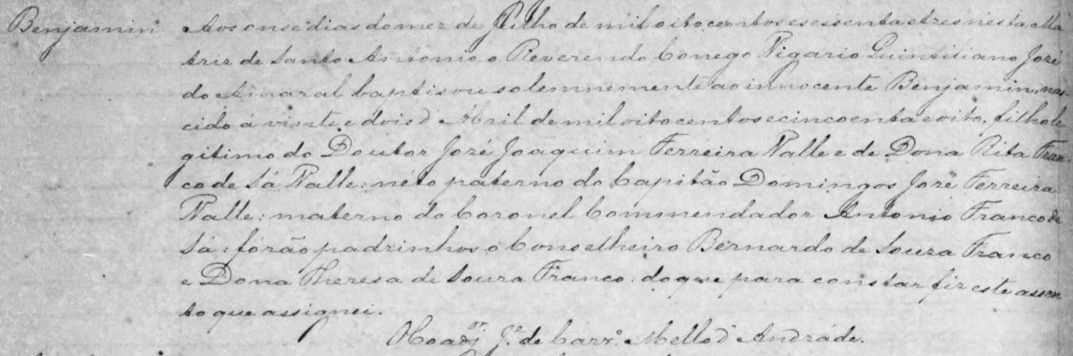 Benjamin Aos onse dias do mez de Julho de mil oito centos e secenta e tres nesta Ma-
triz de Santo Antonio o Reverendo Conego Vigario Quintiliano José
do Amaral baptisou solemnemente ao innocente Benjamin, nas-
cido á vinte e dois d'Abril de mil oito centos e cincoenta e oito, filho le
gitimo do Doutor José Joaquim Ferreira Valle e de Dona Rita Fran-
co de Sá Valle: néto paterno do Capitão Domingos José Ferreira
Valle: materno do Coronel Commendador Antonio Franco de
Sá: forão padrinhos o Conselheiro Bernardo de Souza Franco
e Dona Theresa de Souza Franco: do que para constar fiz este assen
to que assignei.
O Coadj.or J.e de Carv.o Mello d'Andrade.